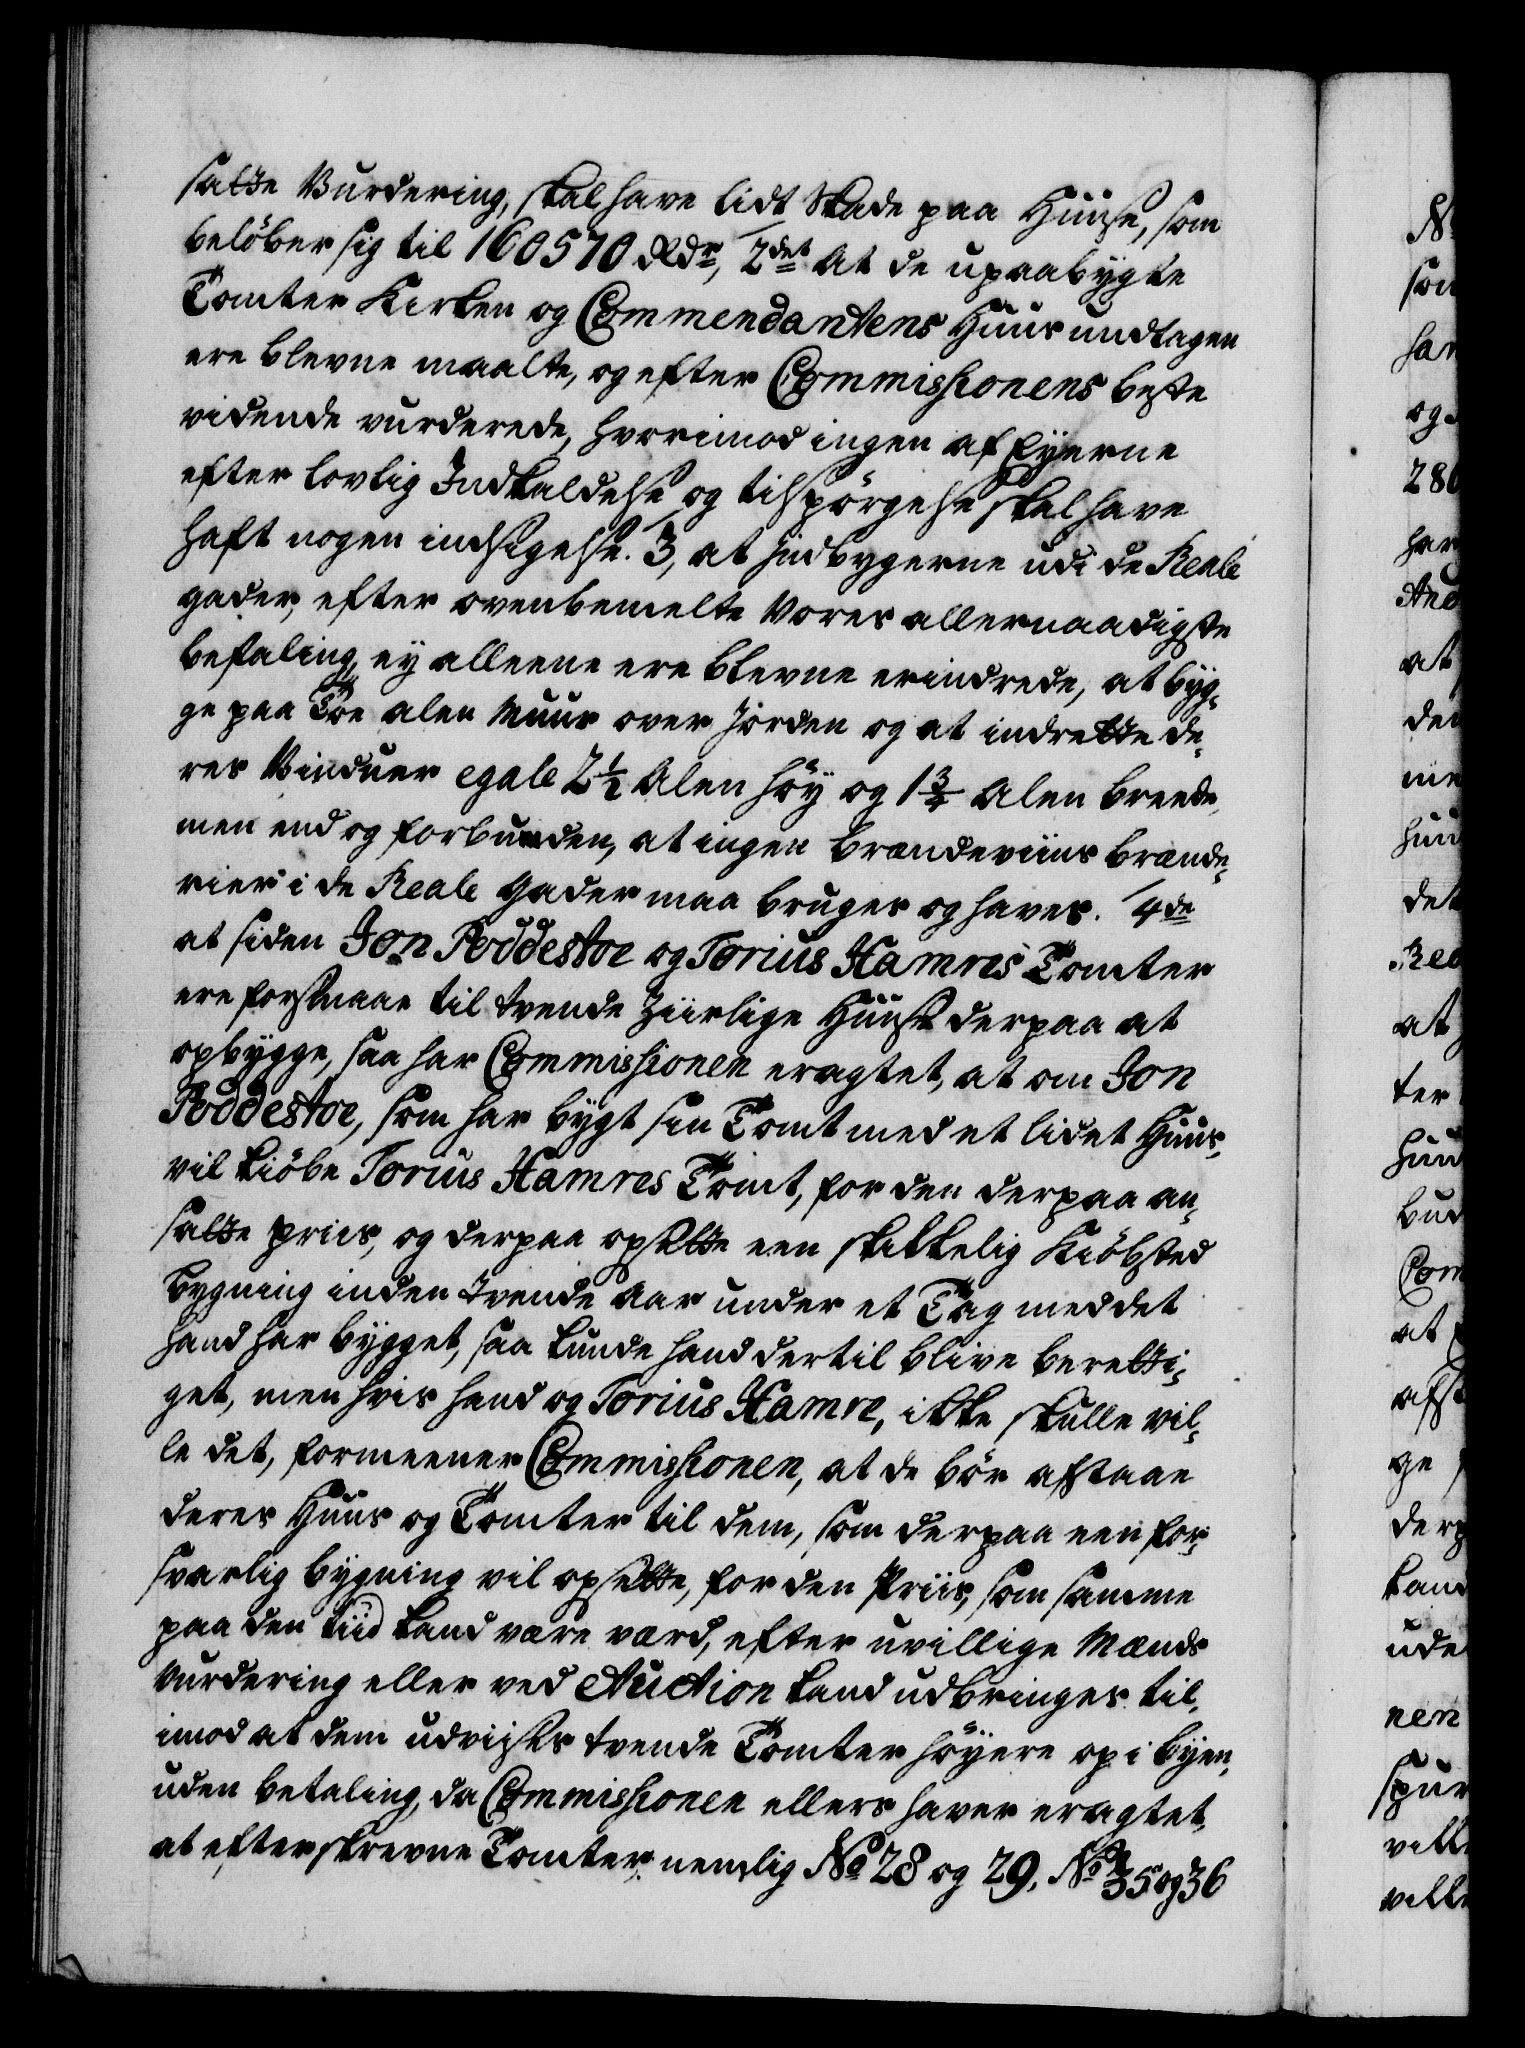 satte Vurdering, skal have lidt Skade paa Huuse, som
beløber sig til 160570 Rdr, 2det At de upaabygte
Tomter Kirken og Commendantens Huus undtagen
ere blevne maalte, og efter Commissionens beste
vidende vurderede, hvorimod ingen af Eyerne
efter lovlig Indkaldelse og tilspørgelse skal have
haft nogen indsigelse. 3, at Indbygerne udi de Reale
gader, efter ovenbemelte Vores allernaadigste
befaling, ey alleene ere blevne erindrede, at byg-
ge paa Toe alen Muur over Jorden og at indrette de-
res Vinduer egale 2½ Alen høy og 1¾ Alen breede,
men end og forbunden, at ingen brændeviins brænde-
rier i de Reale Gader maa bruges og haves. 4de
at siden Jon Poddestoe og Torius Hamres Tomter
ere forsmaae til tvende Ziirlige Huuse derpaa at
opbygge, saa har Commissionen eragtet, at om Jon
Poddestoe, som har bygt sin Tomt med et lidet Huus,
vil kiøbe Torius Hamres Tomt, for den derpaa an-
satte Priis, og derpaa opsætte een skikkelig Kiøbsted
bygning inden tvende Aar under et Tag med det
hand har bygget, saa kunde hand dertil blive beretti-
get, men hvis hand og Torius Hamre, ikke skulle vil-
le det, formeener Commissionen, at de bør afstaae
deres Huus og Tomter til dem, som derpaa een for-
svarlig bygning vil opsætte, for den Priis, som samme
paa den tiid kand være værd, efter uvillige Mænds
Vurdering eller ved Auction kand udbringes til,
imod at dem udviises tvende Tomter høyere op i byen,
uden betaling, da Commissionen ellers haver eragtet,
at efterskrevne Tomter, nemlig No 28 og 29, No 35 og 36